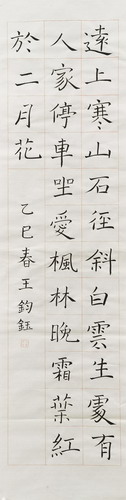 遠上寒山石徑斜白雲生處有
人家停車坐愛楓林晚霜葉紅
於二月花
乙巳春王鈞鈺